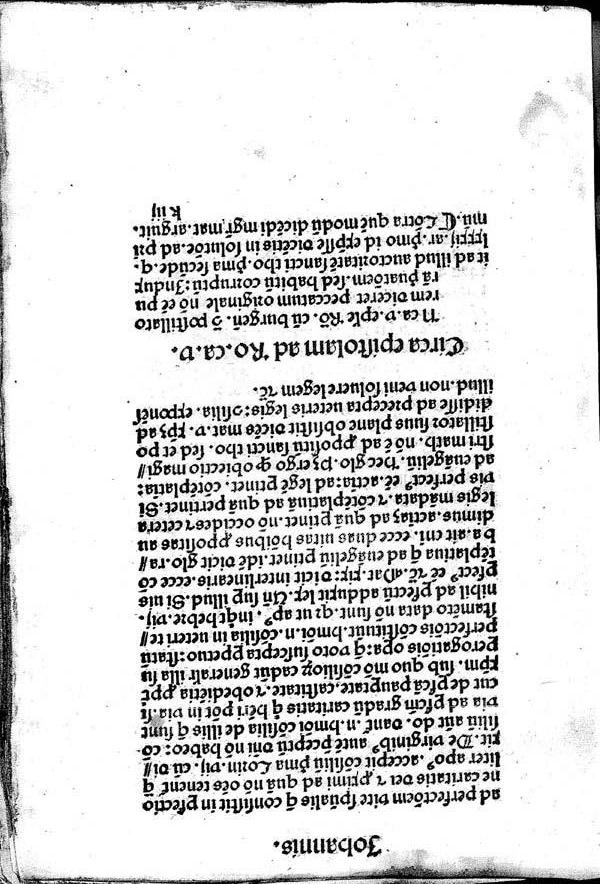 Johannis.
ad perfectōem vite spūalis q̄ consistit in p̄fectio
ne caritatis dei ⁊ p̄ximi ad quā nō oēs tenent̄ q
liter apo⁹. accepit cōsiliū p̄ma Corin. vij. cū di//
xit. De virginib⁹ aūt p̄ceptū dn̄i nō habeo: cō
siliū aūt do. Dant̄. n. hm̄oi cōsilia de illis q̄ sunt
via ad p̄fcm̄ gradū caritatis q̄ hēri pōt in via si
cut de p̄fcā paup̄tate, castitate, ⁊ obediētia ppt̄
xpm̄. sub quo mō cōsilioꝝ cadūt generalr̄ illa su
perogatiōis opa: q̄ voto suscepta p̄petuo: statū
perfectōis cōstituūt. hm̄oi. n. cōsilia in ueteri te//
stamēto data nō sunt. qꝛ ut ap⁹. inq̄t hebre. vij.
nihil ad p̄fectū adduxit lex. Uñ sup̄ illud. Si uis
p̄fect⁹ eē ⁊c̄. Mat. xix: dicit interlinearis. ecce cō
tēplatiua q̄ ad euāgeliū p̄tinet. idē dicit glo. ra//
ba. ait eni. ecce duas uitas hōibus p̄positas au
dimus. actiuā ad quā p̄tinet. nō occides ⁊ cetera
legis mādata. ⁊ cōtēplatiuā ad quā pertinet. Si
vis perfect⁹ eē. actiua: ad legē p̄tinet. cōtēplatiua:
ad euāgeliū. hec glo. pꝫ ergo ꝙ obiectio magi//
stri math. nō ē ad p̄positū sancti tho. sed et po
stillator suus plane obsistit dicēs mat. v. xp̄ꝫ ad
didisse ad precepta ueteris legis: ↄsilia. exponēs
illud. non veni soluere legem ⁊c̄.
Circa epistolam ad Ro. ca. v.
N ca. v. eple Rō. cū burgeñ. postillato
rem diceret peccatum originale nō eē pu
rā p̄uatōem. sed habitū corruptū: Indux
it ad illud auctoritatē sancti tho. p̄ma secūde. q.
lxxxij. ar. p̄mo id exp̄sse dicētis in solutōe. ad p̄ri
mū. Cōtra quē modū dicēdi mgr̄. mat. arguit.
k iij